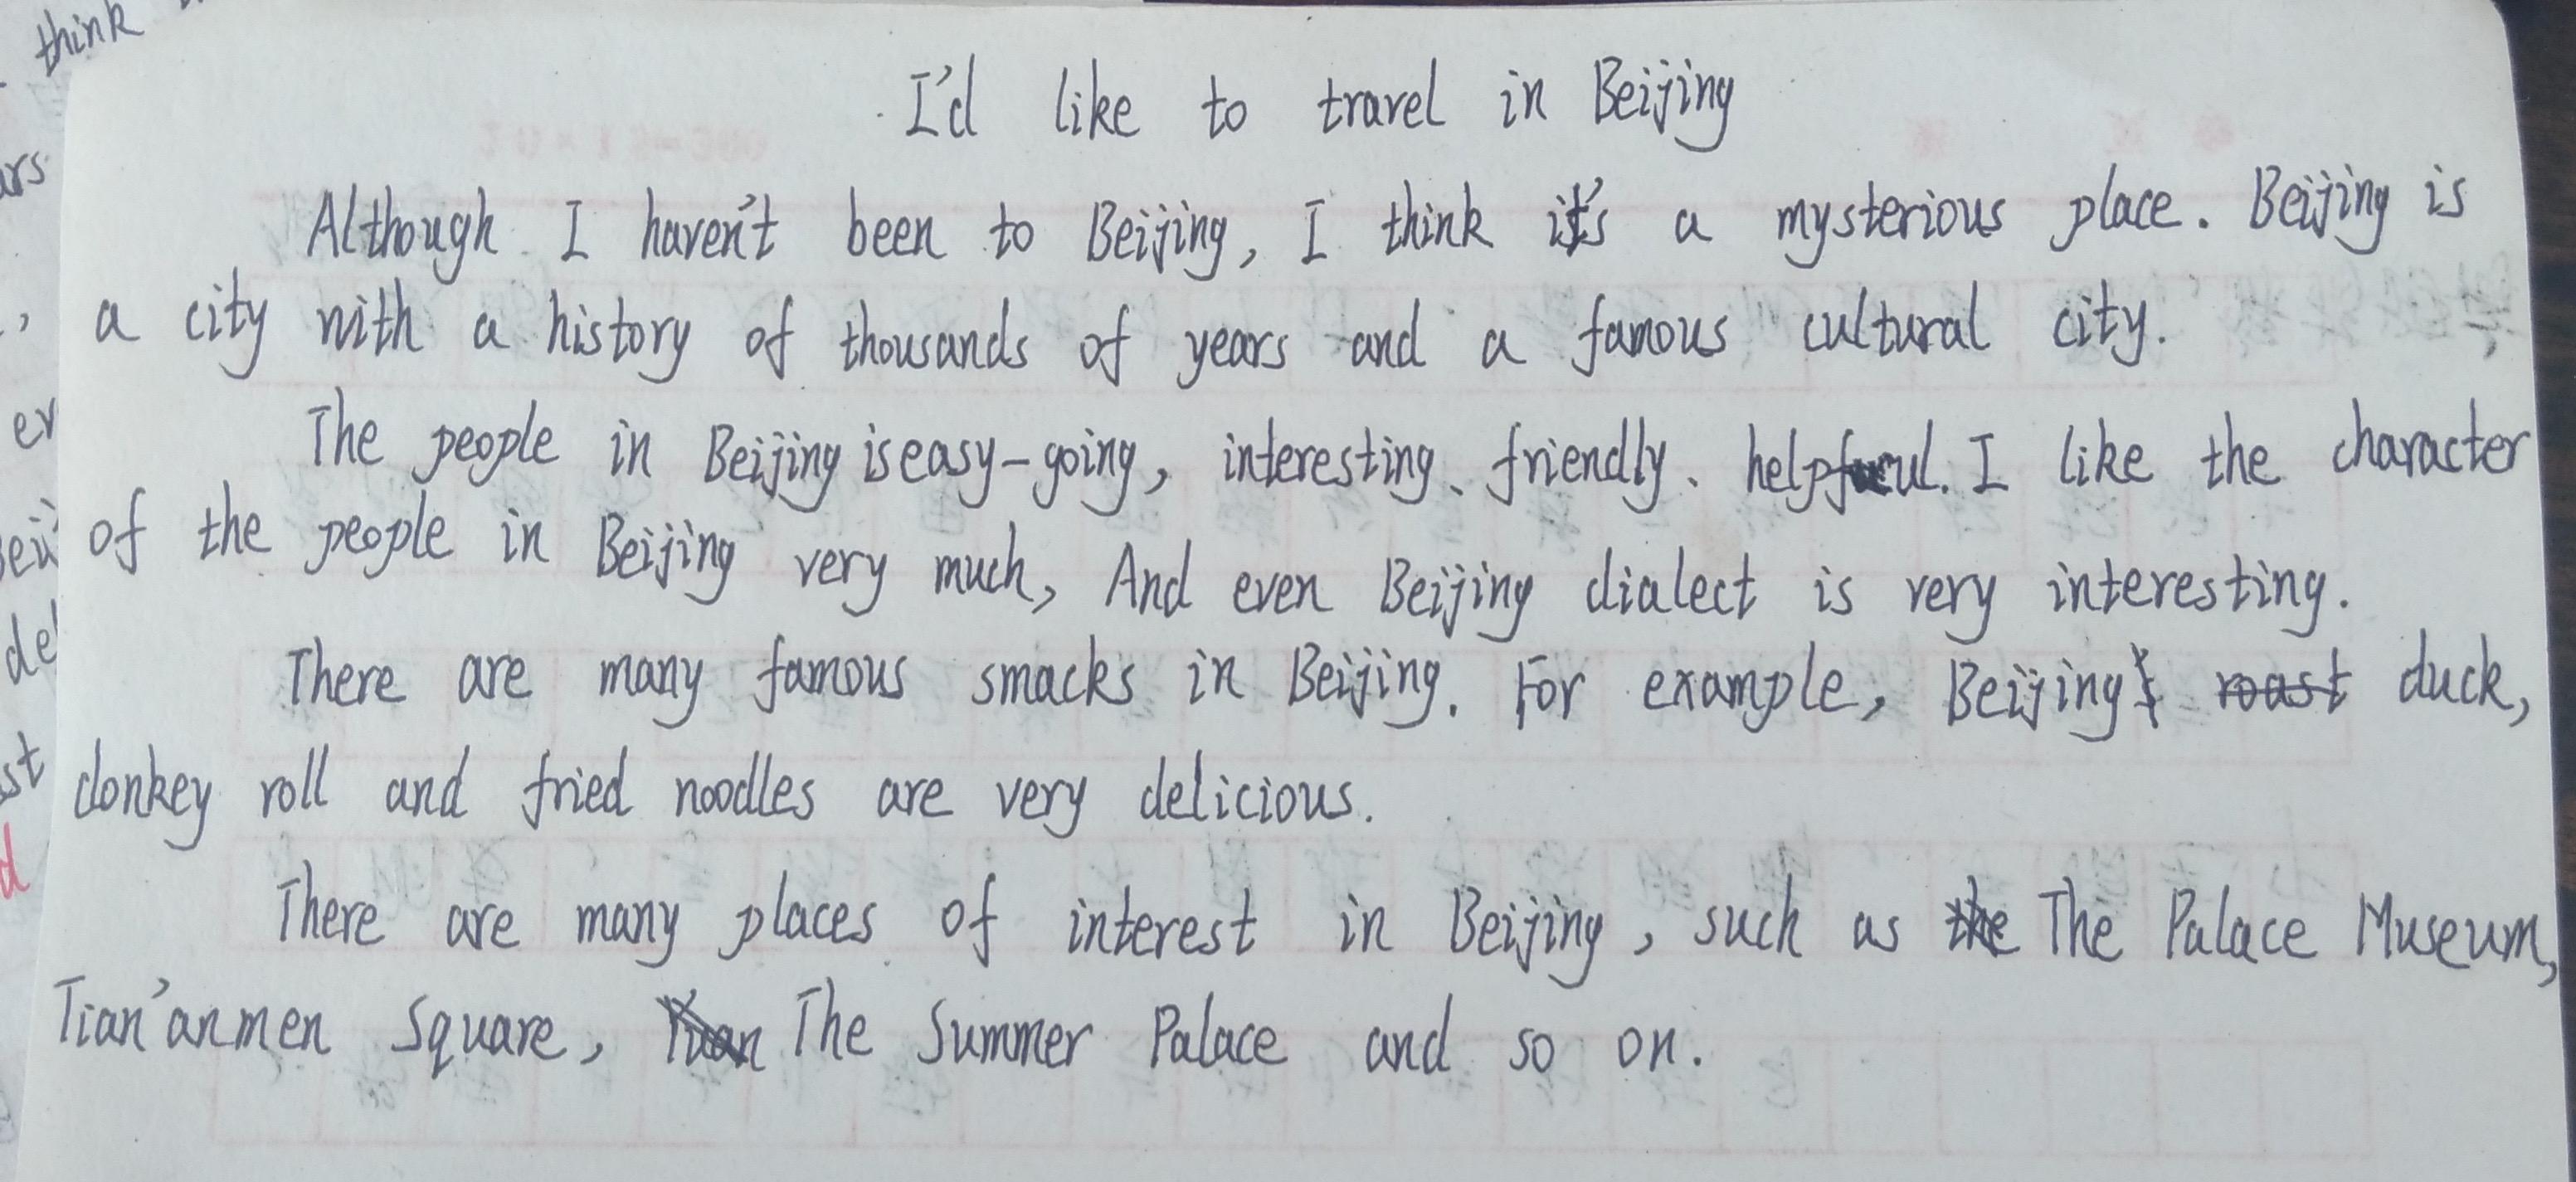 think
I'd like to travel in Beijing
Although I haven't been to Beijing, I think it's a mysterious place. Beijing is
a city with a history of thousands of years and a famous cultural city.
The people in Beijing is easy-going, interesting、friendly、helpful. I like the character
of the people in Beijing very much, And even Beijing dialect is very interesting.
There are many famous smacks in Beijing. For example, Beijing roast duck,
donkey roll and fried noodles are very delicious.
There are many places of interest in Beijing, such as the The Palace Museum,
Tian'anmen Square, The Summer Palace and so on.